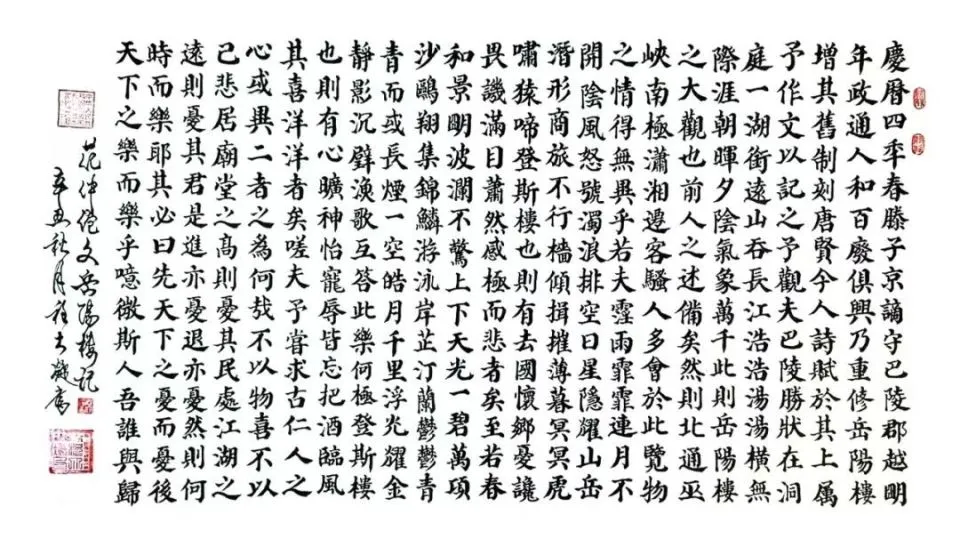 慶曆四秊春滕子京謫守巴陵郡越朙
年政通人和百廢俱興乃重修岳陽樓
增其舊制刻唐賢今人詩賦於其上属
予作文以記之予觀夫巴陵勝狀在洞
庭一湖銜遠山吞長江浩浩湯湯橫無
際涯朝暉夕陰氣象萬千此則岳陽樓
之大觀也前人之述備矣然則北通巫
峽南極瀟湘遷客騷人多會於此覽物
之情得無異乎若夫霪雨霏霏連月不
開陰風怒號濁浪排空日星隱耀山岳
潛形商旅不行檣傾楫摧薄暮冥冥虎
嘯猿啼登斯樓也則有去國懷鄉憂讒
畏譏滿目蕭然感極而悲者矣至若春
和景朙波瀾不驚上下天光一碧萬頃
沙鷗翔集錦鱗游泳岸芷汀蘭鬱鬱青
青而或長煙一空皓月千里浮光耀金
靜影沉璧漁歌互答此樂何極登斯樓
也則有心曠神怡寵辱皆忘把酒臨風
其喜洋洋者矣嗟夫予嘗求古仁人之
心或異二者之為何哉不以物喜不以
己悲居廟堂之高則憂其民處江湖之
遠則憂其君是進亦憂退亦憂然則何
時而樂耶其必曰先天下之憂而憂後
天下之樂而樂乎噫微斯人吾誰與歸
范仲淹文岳陽樓記
辛丑秋月書